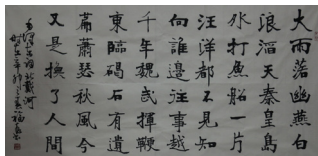 大雨落幽燕白
浪滔天秦皇島
外打魚船一片
汪洋都不見知
向誰邊往事越
千年魏武揮鞭
東臨碣石有遺
篇蕭瑟秋風今
又是換了人間